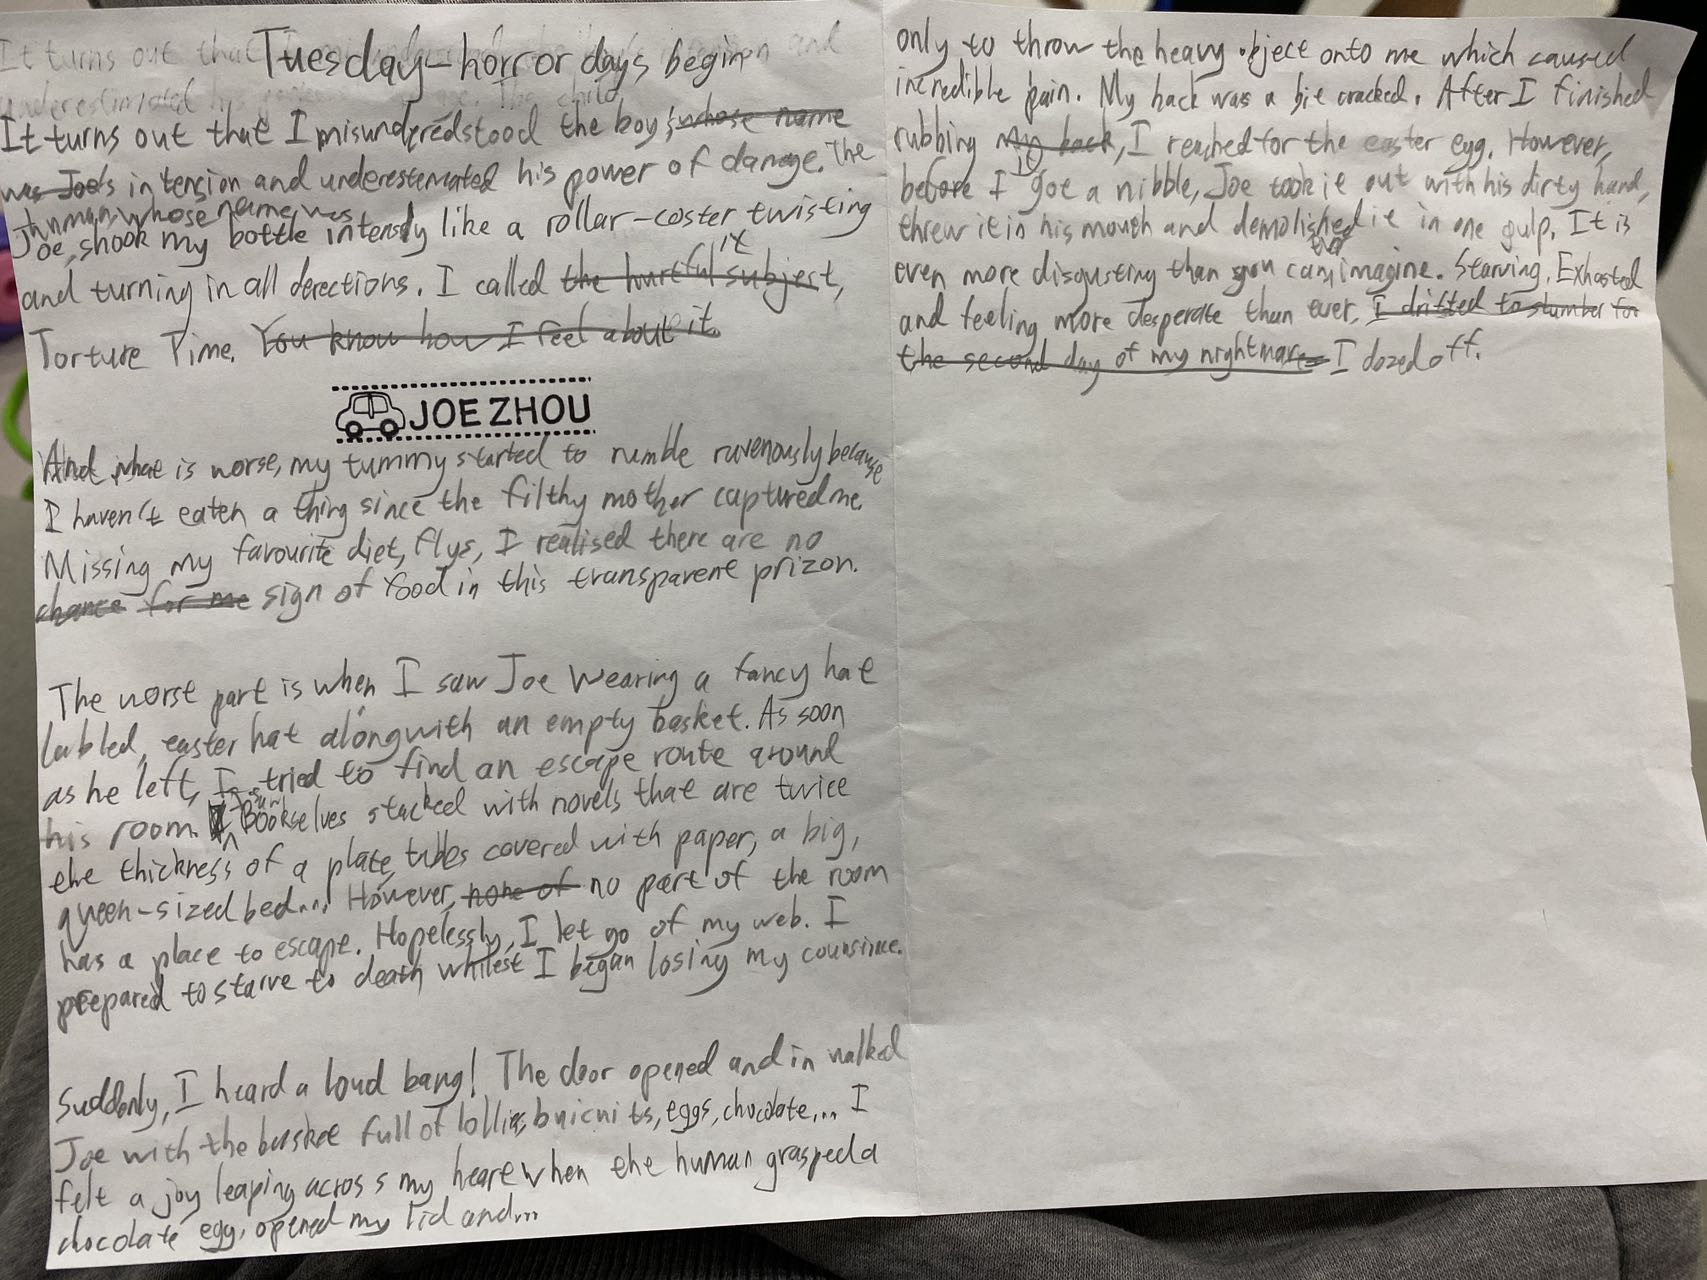 Tuesday-horror days begin
It turns out that I misunderedstood the boy's whose name
was Joe's intension and underestemated his power of damage. The
human, whose name was
Joe, shook my bottle intensly like a rollar-coster twisting
and turning in all derections. I called the hurtful subject, it
Torture Time. You know how I feel about it.
JOE ZHOU
And what is worse, my tummy started to rumble ravenously because
I haven't eaten a thing since the filthy mother captured me.
Missing my favourite diet, flys, I realised there are no
chance for me sign of food in this transparent prizon.
The worst part is when I saw Joe wearing a fancy hat
labled, easter hat alongwith an empty basket. As soon
as he left, I tried to find an escape route around
his room. I saw bookselves stacked with novels that are twice
the thickness of a plate, tables covered with paper, a big,
queen-sized bed... However, none of no part of the room
has a place to escape. Hopelessly, I let go of my web. I
prepared to starve to death whilest I began losing my
Suddenly, I heard a loud bang! The door opened and in walked
Joe with the basket full of lollies, eggs, chocolate... I
felt a joy leaping across my heart when the human grasped a
chocolate egg, opened my lid and...
only to throw the heavy object onto me which caused
incredible pain. My back was a bit cracked. After I finished
rubbing my back, it, I reached for the easter egg. However,
before I got a nibble, Joe took it out with his dirty hand,
threw it in his mouth and demolished it in one gulp. It is
even more disgusting than you can ever imagine. Starving, Exhosted
and feeling more desperate than ever, I drifted to slumber for
the second day of my nightmare I dozed off.